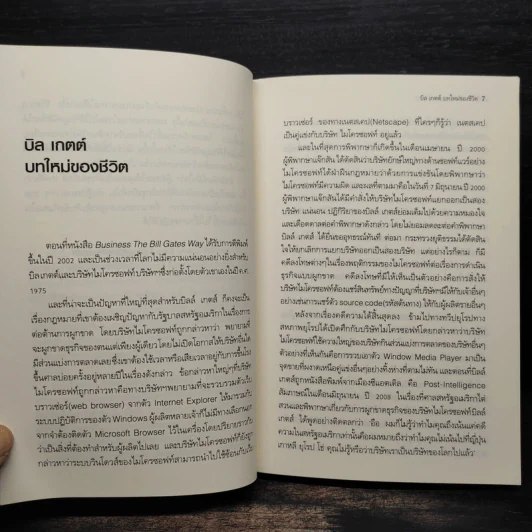 บิล เกตต์
บทใหม่ของชีวิต
ตอนที่หนังสือ Business The Bill Gates Way ได้รับการตีพิมพ์
ขึ้นในปี 2002 และเป็นช่วงเวลาที่โลกไม่มีความแน่นอนอย่างยิ่งสำหรับ
บิล เกตส์และบริษัทไมโครซอฟท์ บริษัทฯซึ่งก่อตั้งโดยตัวเขาเองในปี ค.ศ.
1975
และที่น่าจะเป็นปัญหาที่ใหญ่ที่สุดสำหรับบิลล์ เกตส์ ก็คงจะเป็น
เรื่องกฎหมายที่เขาต้องเผชิญปัญหากับรัฐบาลสหรัฐอเมริกาในเรื่องการ
ต่อต้านการผูกขาด โดยบริษัทไมโครซอฟท์ถูกกล่าวหาว่า พยายามที่
จะผูกขาดธุรกิจของตนแต่เพียงผู้เดียวโดยไม่เปิดโอกาสให้บริษัทอื่นได้
มีส่วนแบ่งการตลาดเลยซึ่งเขาต้องใช้เวลาหรือเสียเวลาอยู่กับการขึ้นโรง
ขึ้นศาลบ่อยครั้งอยู่หลายปีในเรื่องดังกล่าว ข้อกล่าวหาใหญ่ๆที่บริษัท
ไมโครซอฟท์ถูกกล่าวหาคือทางบริษัทฯพยายามที่จะรวบรวมตัวเว็บ
บราวเซ่อร์(web browser) จากตัว Internet Explorer ให้มารวมกับ
ระบบปฏิบัติการของตัว Windows ผู้ผลิตหลายเจ้าก็ไม่มีทางเลือกนอก
จากจำต้องติดตัว Microsoft Browser ไว้ในเครื่องโดยปริยายราวกับ
ว่าเป็นสิ่งที่ต้องทำสำหรับผู้ผลิตไปเลย และบริษัทไมโครซอฟท์ก็ยังถูก
กล่าวหาว่าระบบวินโดวส์ของไมโครซอฟท์สามารถนำไปใช้ซ้อนกับเว็บ
บิล เกตต์ บทใหม่ของชีวิต 7
บราวเซ่อร์ ของทางเนตสเคป(Netscape) ที่ใครๆก็รู้ว่า เนตสเคป
เป็นคู่แข่งกับบริษัท ไมโครซอฟท์ อยู่แล้ว
และในที่สุดการพิพากษาก็เกิดขึ้นในเดือนเมษายน ปี 2000
ผู้พิพากษาแจ๊กสัน ได้ตัดสินว่าบริษัทยักษ์ใหญ่ทางด้านซอฟท์แวร์อย่าง
ไมโครซอฟท์ได้ฝ่าฝืนกฎหมายว่าด้วยการแข่งขันโดยพิพากษาว่า
ไมโครซอฟท์มีความผิด และผลที่ตามมาคือในวันที่ 7 มิถุนายน ปี 2000
ผู้พิพากษาแจ๊กสันได้มีคำสั่งให้บริษัทไมโครซอฟท์แยกออกเป็นสอง
บริษัท แน่นอน ปฏิกิริยาของบิลล์ เกตส์ย่อมเต็มไปด้วยความหมองใจ
และเดือดดาลต่อคำพิพากษาดังกล่าว โดยไม่ยอมลดละต่อคำพิพากษา
บิลล์ เกตส์ ได้ยื่นขออุทธรณ์ทันที ต่อมา กระทรวงยุติธรรมได้ตัดสิน
ใจให้ยกเลิกการแยกบริษัทออกเป็นสองบริษัท แต่อย่างไรก็ตาม ก็มี
คดีลงโทษต่างๆในเรื่องพฤติกรรมของไมโครซอฟท์ต่อการดำเนิน
ธุรกิจแบบผูกขาด คดีลงโทษที่มีให้เห็นเป็นตัวอย่างคือการสั่งให้
บริษัทไมโครซอฟท์ต้องแชร์สินทรัพย์ทางปัญญาที่บริษัทฯมีให้กับเจ้าอื่นๆ
อย่างเช่นการแชร์ตัว source code(รหัสต้นทาง) ให้กับผู้ผลิตรายอื่นๆ
หลังจากเรื่องคดีความได้สิ้นสุดลง ข้ามไปทางทวีปยุโรปทาง
สหภาพยุโรปได้เปิดศึกกับบริษัทไมโครซอฟท์โดยกล่าวหาว่าบริษัท
ไมโครซอฟท์ใช้ความใหญ่ของบริษัทกินส่วนแบ่งทางการตลาดของบริษัทอื่นๆ
ตัวอย่างที่เห็นกันคือการรวบเอาตัว Window Media Player มาเป็น
จุดขายที่ผงาดเหนือคู่แข่งอื่นๆอย่างที่สงห่างที่ตามไม่ทัน และตอนที่บิลล์
เกตส์ถูกหนังสือพิมพ์จากเมืองซีแอตเติล คือ Post-Intelligence
สัมภาษณ์ในเดือนมิถุนายน ปี 2008 ในเรื่องที่ศาลสหรัฐอเมริกาไต่
สวนและพิพากษาเกี่ยวกับการผูกขาดธุรกิจของบริษัทไมโครซอฟท์บิลล์
เกตส์ ได้พูดอย่างติดตลกว่า
ความในสหรัฐอเมริกาเท่านั้นคือผมหมายถึงว่าทำไมคุณไม่เน้นไปที่ญี่ปุ่น
เกาหลี ยุโรป ไซ่ คุณไม่รู้หรือว่าบริษัทเราเป็นบริษัทของโลกไปแล้ว